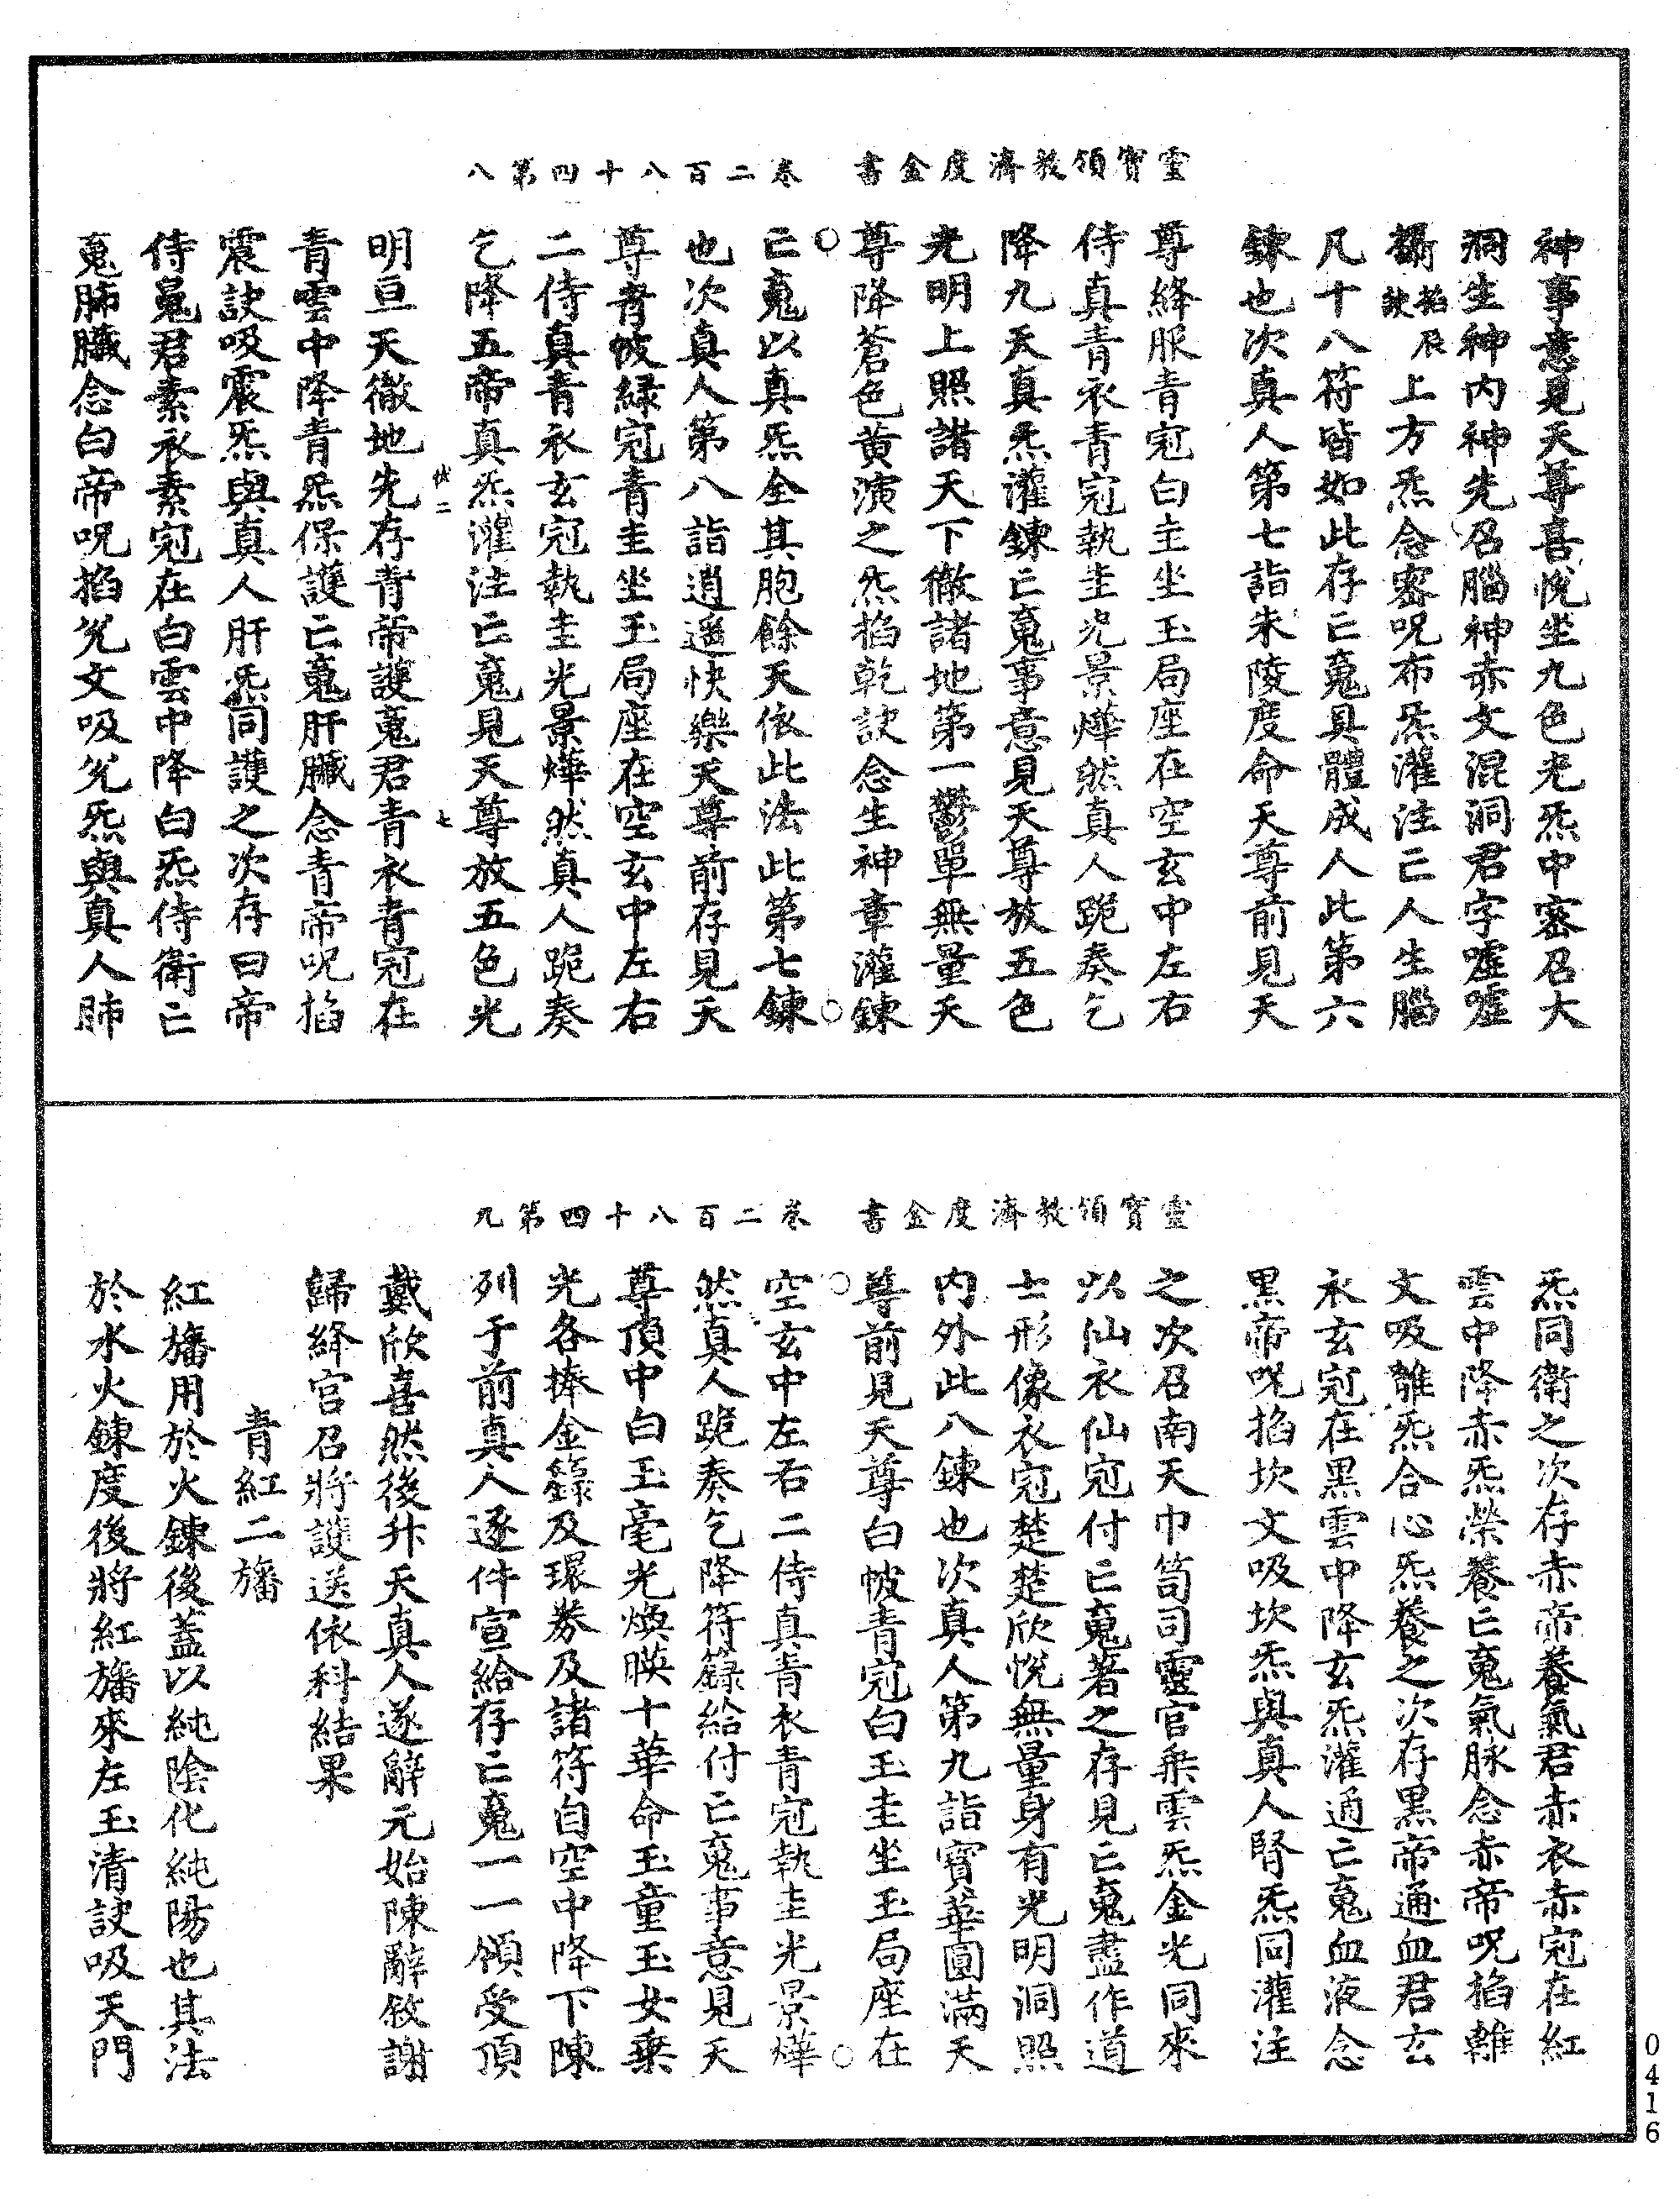 靈寶領教濟度金書　卷二百八十四第八
神事意見天尊喜悅坐九色光炁中密召大
洞生神內神先召腦神赤文混洞君字噓噓
攝掐辰訣上方炁念密呪布炁灌注亡人生腦
凡十八符皆如此存亡䰟具體成人此第六
鍊也次真人第七詣朱陵度命天尊前見天
尊絳服青𡨥白圭坐玉局座在空玄中左右
侍真青衣青𡨥執圭光景燁然真人跪奏乞
降九天真炁灌鍊亡䰟事意見天尊放五色
光明上照諸天下徹諸地第一鬱單無量天
尊降蒼色黃演之炁掐乾訣念生神章灌鍊
亡䰟以真炁全其胞餘天依此法此第七鍊
也次真人第八詣逍遙快樂天尊前存見天
尊青帔綠𡨥青圭坐玉局座在空玄中左右
二侍真青衣玄𡨥執圭光景燁然真人跪奏
乞降五帝真炁灌注亡䰟見天尊放五色光
二　七
明亘天徹地先存青帝護䰟君青衣青𡨥在
青雲中降青炁保護亡䰟肝臟念青帝呪掐
震訣吸震炁與真人肝炁同護之次存白帝
侍䰟君素衣素𡨥在白雲中降白炁侍衛亡
䰟肺臟念白帝呪掐兊文吸兊炁與真人肺
靈寶領教濟度金書　卷二百八十四第九
炁同衛之次存赤帝養氣君赤衣赤𡨥在紅
雲中降赤炁榮養亡䰟氣脉念赤帝呪掐離
文吸離炁合心炁養之次存黑帝通血君玄
衣玄𡨥在黑雲中降玄炁灌通亡䰟血液念
黑帝呪掐坎文吸坎炁與真人腎炁同灌注
之次召南天巾笥司靈官乘雲炁金光同來
以仙衣仙𡨥付亡䰟著之存見亡䰟盡作道
士形像衣𡨥楚楚欣悅無量身有光明洞照
內外此八鍊也次真人第九詣寶華圓滿天
尊前見天尊白帔青𡨥白玉圭坐玉局座在
空玄中左右二侍真青衣青𡨥執圭光景燁
然真人跪奏乞降符籙給付亡䰟事意見天
尊頂中白玉毫光煥暎十華命玉童玉女乘
光各捧金籙及環券及諸符自空中降下陳
列于前真人逐件宣給存亡䰟一一領受頂
戴欣喜然後升天真人遂辭元始陳辭敘謝
歸絳宮召將護送依科結果
青紅二旛
紅旛用於火鍊後蓋以純陰化純陽也其法
於水火鍊度後將紅旛來左玉清訣吸天門
0416